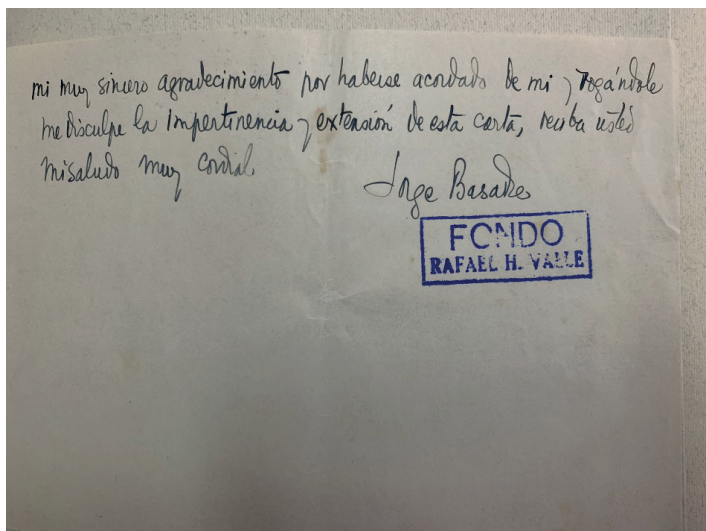 mi muy sincero agradecimiento por haberse acordado de mi y rogándole
me disculpe la impertinencia y extensión de esta carta, reciba usted
mi saludo muy cordial
Jorge Basadre
FONDO
RAFAEL H. VALLE